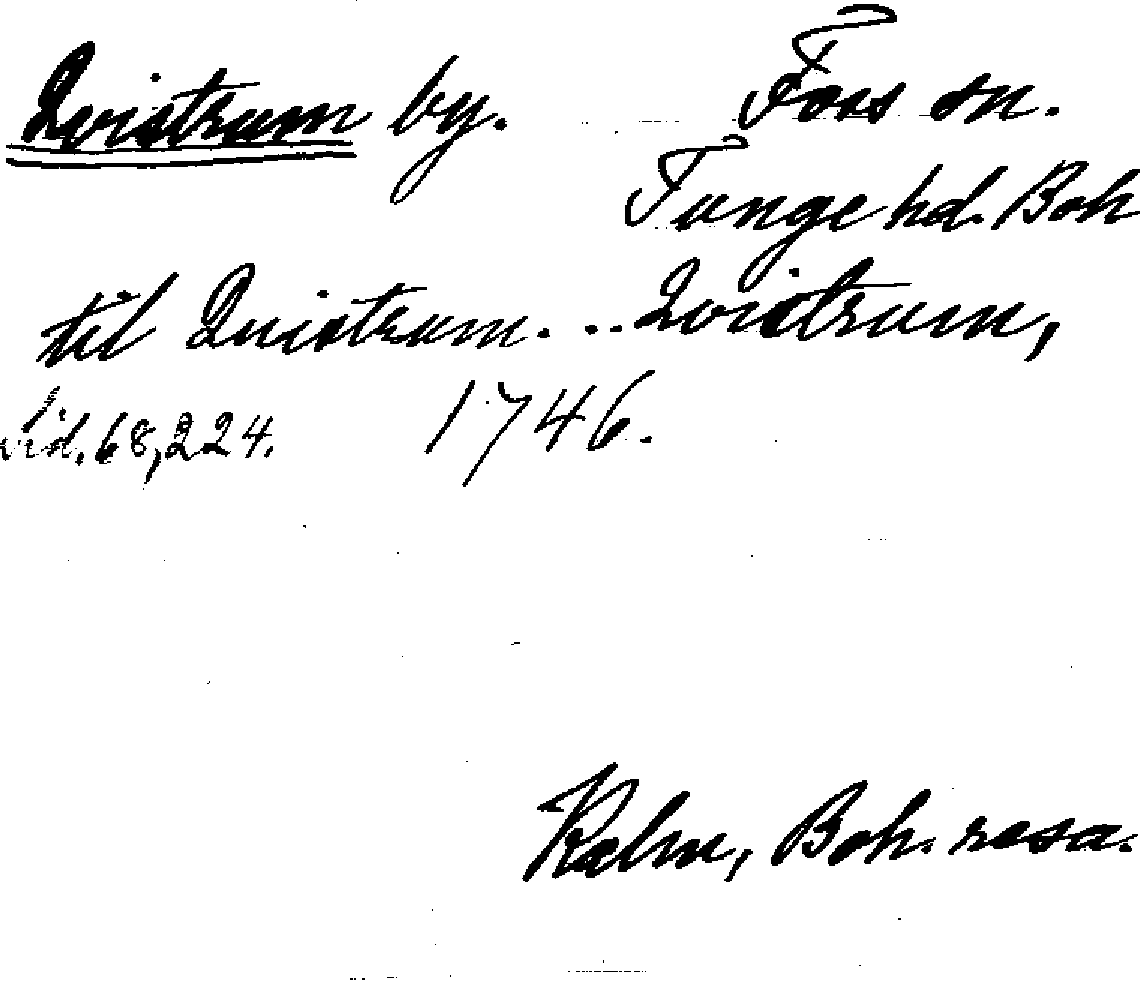 Qvistrum by. Foss sn.
Tunge hd. Boh
til Quistrum... Qvistrum,
Sid. 68, 224. 1746.
Kalm, Boh. resa.